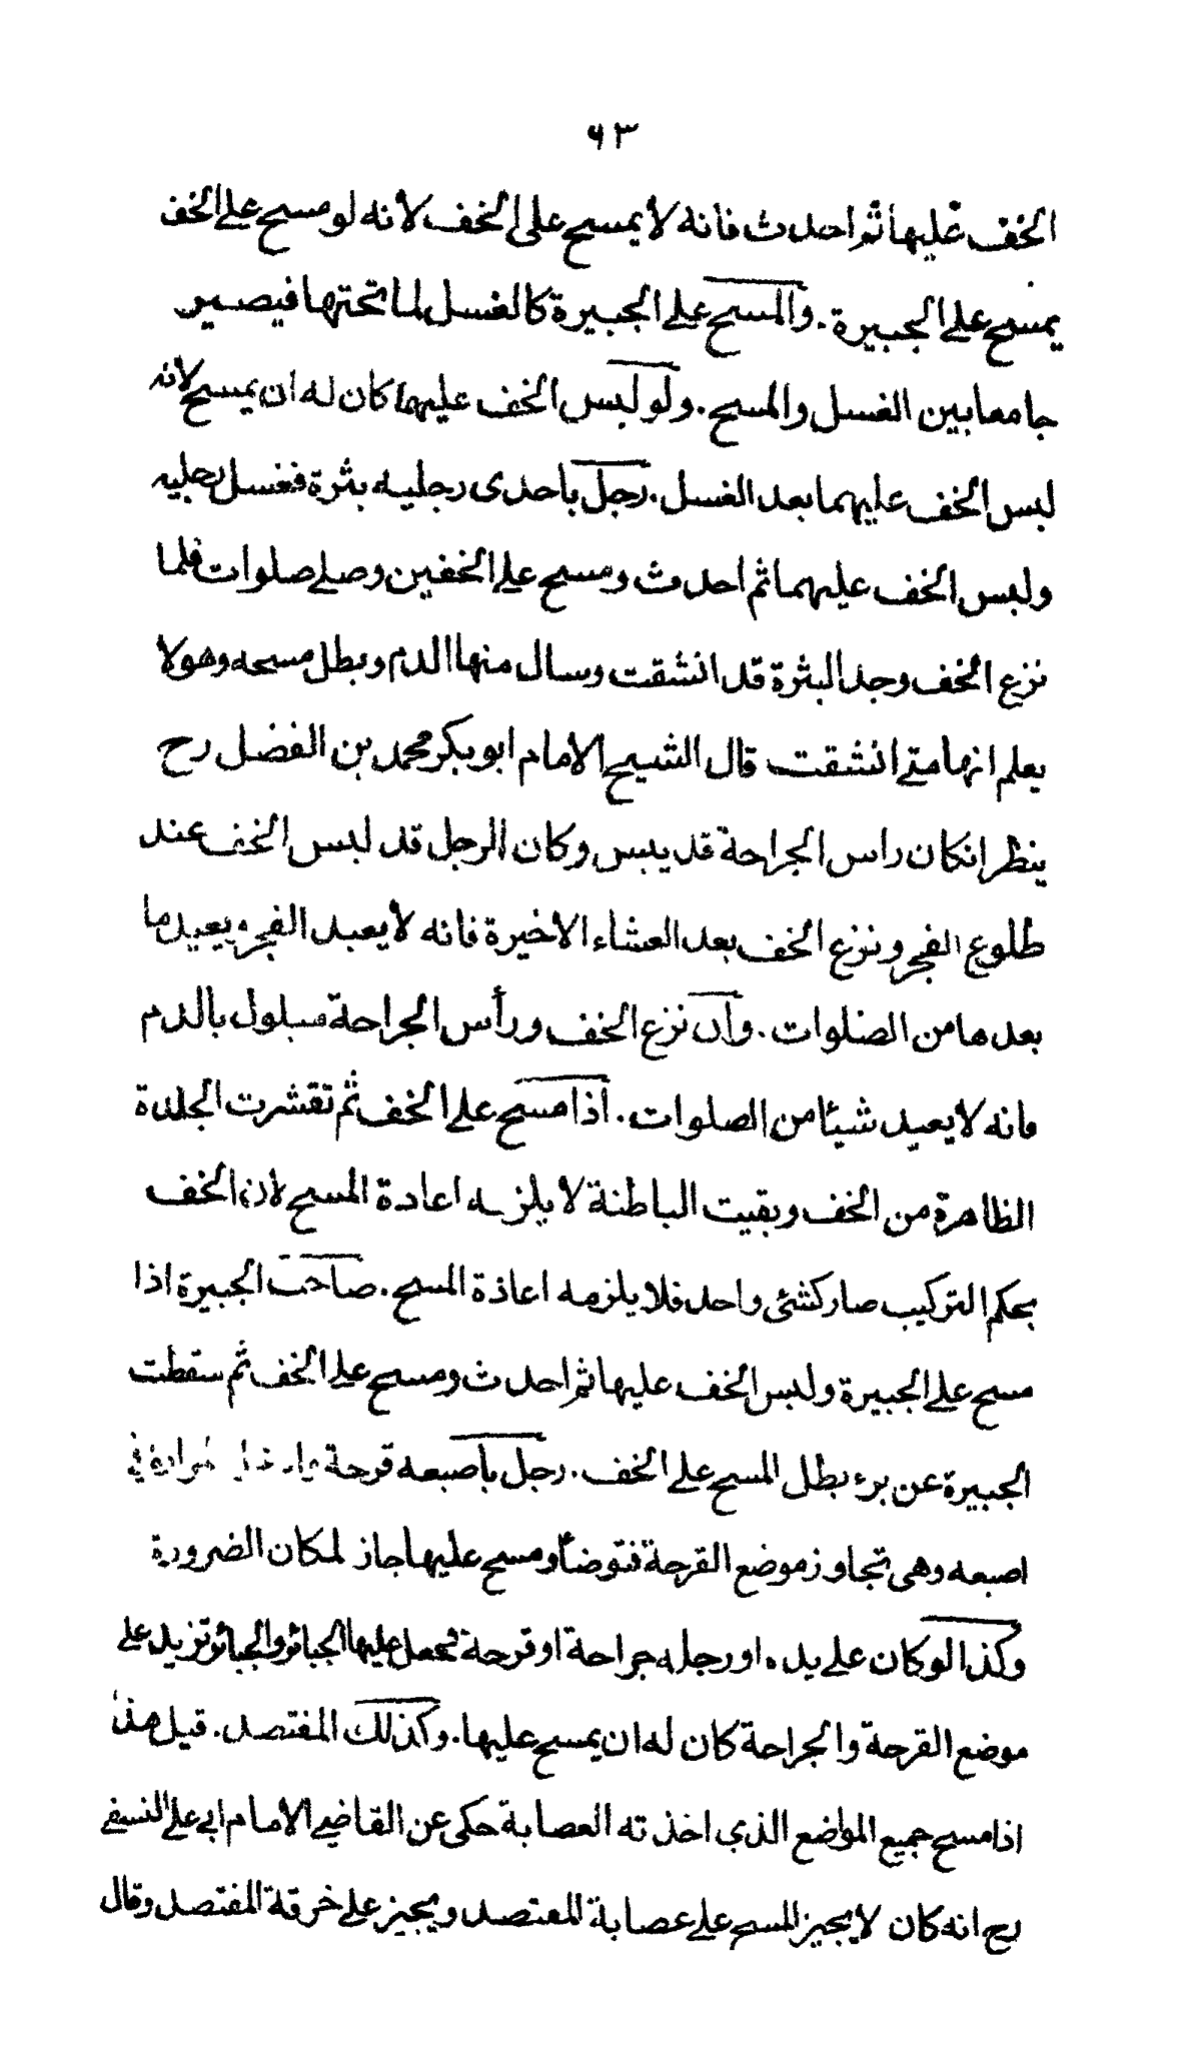 ٩٣
الخف عليها ثم احدث فانه لا يمسح على الخف لانه لو مسح على الخف
يمسح على الجبيرة . والمسح على الجبيرة كالغسل لما تحتها فيصير
جامعا بين الغسل والمسح . ولو لبس الخف عليهما كان له ان يمسح لانه
لبس الخف عليهما بعد الغسل . رجل باحدى رجليه بثرة فغسل رجليه
ولبس الخف عليهما ثم احدث ومسح على الخفين وصلى صلوات فلما
نزع الخف وجد البثرة قد انشقت وسال منها الدم وبطل مسحه وهو لا
يعلم انها متى انشقت قال الشيخ الامام ابو بكر محمد بن الفضل رح
ينظر انكان راس الجراحة قد يبس وكان الرجل قد لبس الخف عند
طلوع الفجر ونزع الخف بعد العشاء الاخيرة فانه لا يعيد الفجر ويعيد ما
بعدها من الصلوات . وان نزع الخف ورأس الجراحة مبلول بالدم
فانه لا يعيد شيئا من الصلوات . اذا مسح على الخف ثم تقشرت الجلدة
الظاهرة من الخف وبقيت الباطنة لا يلزمه اعادة المسح لان الخف
بحكم التركيب صار كشئ واحد فلا يلزمه اعادة المسح . صاحب الجبيرة اذا
مسح على الجبيرة ولبس الخف عليها ثم احدث ومسح على الخف ثم سقطت
الجبيرة عن برء بطل المسح على الخف . رجل باصبعه قرحة في
اصبعه وهي تجاوز موضع القرحة فتوضأ ومسح عليها جاز لمكان الضرورة
وكذا لو كان على يده او رجله جراحة او قرحة فجعل عليها الجبائر والجبائر تزيد على
موضع القرحة والجراحة كان له ان يمسح عليها . وكذلك المفتصد . قيل هذا
اذا مسح جميع المواضع الذي اخذته العصابة حكى عن القاضي الامام ابي علي النسفي
رح انه كان لا يجيز المسح على عصابة المفتصد ويجيز على خرقة المفتصد وقال